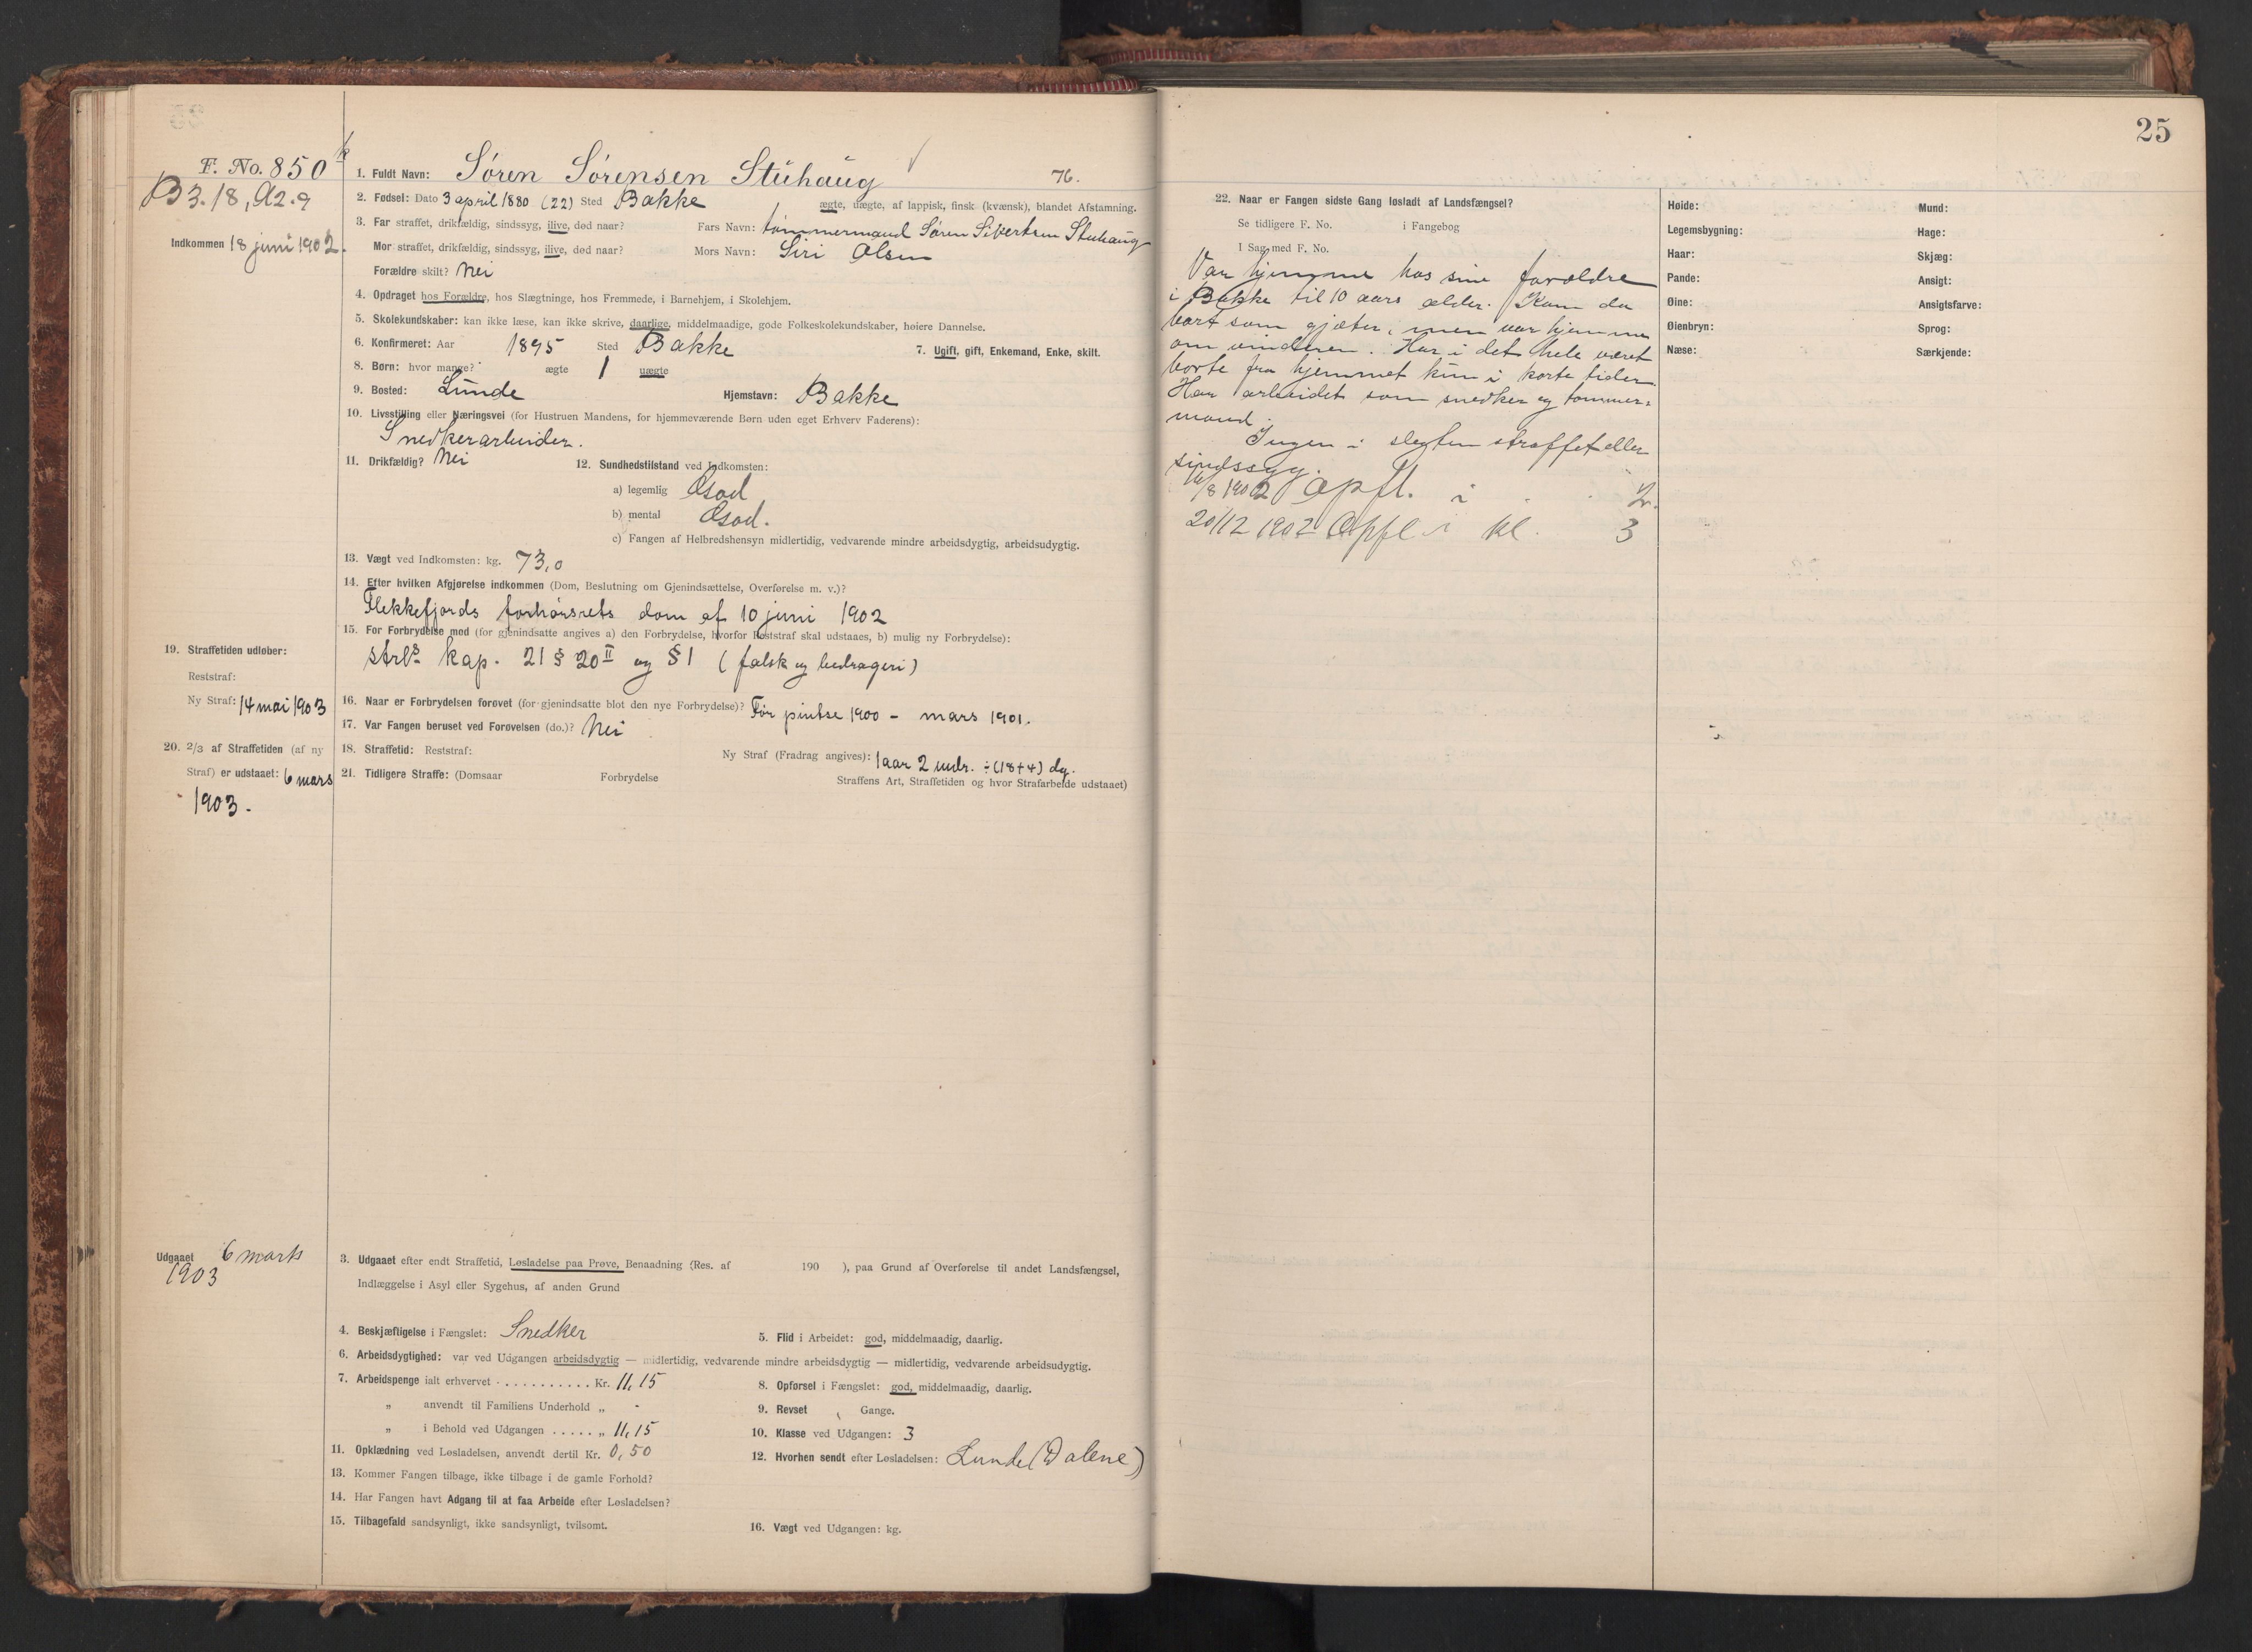 F. No. 850
B3.18, A2.9
Indkommen 18 juni 1902.
1. Fuldt Navn: Søren Sørensen Stuhaug 76.
2. Fødsel: Dato 3 april 1880 (22) Sted Bakke ægte, uægte, af lappisk, finsk (kvænsk), blandet Afstamning.
3. Far straffet, drikfældig, sindssyg, ilive, død naar? Fars Navn: tømmermand Søren Sivertsen Stuhaug
Mor straffet, drikfældig, sindssyg, ilive, død naar? Mors Navn: Siri Olsen
Forældre skilt? Nei
4. Opdraget hos Forældre, hos Slægtninge, hos Fremmede, i Barnehjem, i Skolehjem.
5. Skolekundskaber: kan ikke læse, kan ikke skrive, daarlige, middelmaadige, gode Folkeskolekundskaber, høiere Dannelse.
6. Konfirmeret: Aar 1895 Sted Bakke 7. Ugift, gift, Enkemand, Enke, skilt.
8. Børn: hvor mange? ægte 1 uægte
9. Bosted: Lunde Hjemstavn: Bakke
10. Livsstilling eller Næringsvei (for Hustruen Mandens, for hjemmeværende Børn uden eget Erhverv Faderens):
Snedkerarbeider.
11. Drikfældig? Nei 12. Sundhedstilstand ved Indkomsten:
a) legemlig God
b) mental God.
c) Fangen af Helbredshensyn midlertidig, vedvarende mindre arbeidsdygtig, arbeidsudygtig.
13. Vægt ved Indkomsten: kg. 73,0
14. Efter hvilken Afgjørelse indkommen (Dom, Beslutning om Gjenindsættelse, Overførelse m. v.)?
Flekkefjords forhørsrets dom af 10 juni 1902
15. For Forbrydelse mod (for gjenindsatte angives a) den Forbrydelse, hvorfor Reststraf skal udstaaes, b) mulig ny Forbrydelse):
strls kap. 21 § 20 II og § 1 (falsk og bedrageri)
16. Naar er Forbrydelsen forøvet (for gjenindsatte blot den nye Forbrydelse)? Før pintse 1900 - mars 1901.
17. Var Fangen beruset ved Forøvelsen (do.)? Nei
18. Straffetid: Reststraf: Ny Straf (Fradrag angives): 1 aar 2 mdr. ÷ (18+4) dg.
19. Straffetiden udløber:
Reststraf:
Ny Straf: 14 mai 1903
20. 2/3 af Straffetiden (af ny
Straf) er udstaaet: 6 mars
1903.
21. Tidligere Straffe: (Domsaar Forbrydelse Straffens Art, Straffetiden og hvor Strafarbeide udstaaet)
Udgaaet 6 marts
1903
3. Udgaaet efter endt Straffetid, Løsladelse paa Prøve, Benaadning (Res. af 190 ), paa Grund af Overførelse til andet Landsfængsel,
Indlæggelse i Asyl eller Sygehus, af anden Grund
4. Beskjæftigelse i Fængslet: Snedker 5. Flid i Arbeidet: god, middelmaadig, daarlig.
6. Arbeidsdygtighed: var ved Udgangen arbeidsdygtig — midlertidig, vedvarende mindre arbeidsdygtig — midlertidig, vedvarende arbeidsudygtig.
7. Arbeidspenge ialt erhvervet . . . . . . . . . . . Kr. 11,15 8. Opførsel i Fængslet: god, middelmaadig, daarlig.
„ anvendt til Familiens Underhold „ - 9. Revset Gange.
„ i Behold ved Udgangen . . . . . „ 11,15 10. Klasse ved Udgangen: 3
11. Opklædning ved Løsladelsen, anvendt dertil Kr. 0,50 12. Hvorhen sendt efter Løsladelsen: Lunde (Dalene)
13. Kommer Fangen tilbage, ikke tilbage i de gamle Forhold?
14. Har Fangen havt Adgang til at faa Arbeide efter Løsladelsen?
15. Tilbagefald sandsynligt, ikke sandsynligt, tvilsomt. 16. Vægt ved Udgangen: kg.
25
22. Naar er Fangen sidste Gang løsladt af Landsfængsel?
Se tidligere F. No. i Fangebog
I Sag med F. No.
Var hjemme hos sine forældre
i Bakke til 10 aars alder. Kom da
bort som gjæter, men var hjemme
om vinteren. Har i det hele været
borte fra hjemmet kun i korte tider.
Har arbeidet som snedker og tømmer=
mand.
Ingen i slegten straffet eller
sindssyg.
16/8 1902 Opfl. i 2.
20/12 1902 Opfl i kl. 3
Høide:
Legemsbygning:
Haar:
Pande:
Øine:
Øienbryn:
Næse:
Mund:
Hage:
Skjæg:
Ansigt:
Ansigtsfarve:
Sprog:
Særkjende: